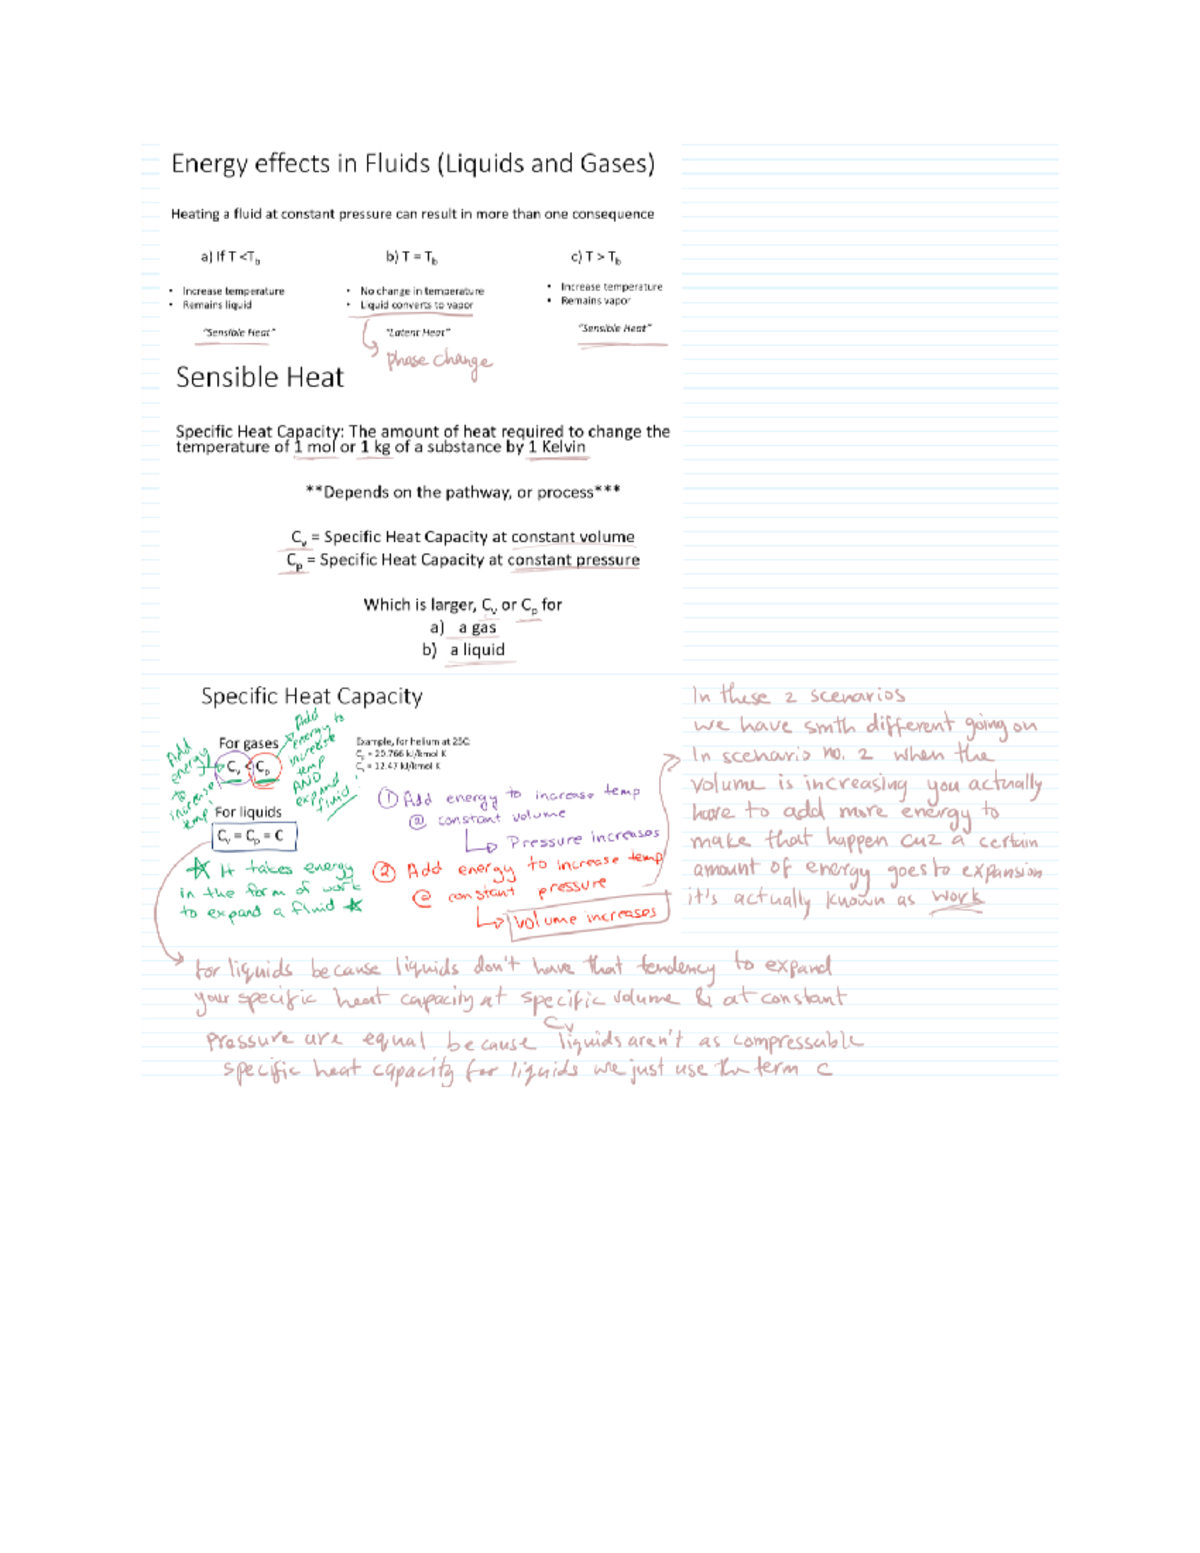 Energy effects in Fluids (Liquids and Gases)
Heating a fluid at constant pressure can result in more than one consequence
a) If T <Tb
• Increase temperature
• Remains liquid
"Sensible Heat"
b) T = Tb
• No change in temperature
• Liquid converts to vapor
"Latent Heat"
phase change
c) T > Tb
• Increase temperature
• Remains vapor
"Sensible Heat"
Sensible Heat
Specific Heat Capacity: The amount of heat required to change the
temperature of 1 mol or 1 kg of a substance by 1 Kelvin
**Depends on the pathway, or process***
Cv = Specific Heat Capacity at constant volume
Cp = Specific Heat Capacity at constant pressure
Which is larger, Cv or Cp for
a) a gas
b) a liquid
Specific Heat Capacity
For gases
Cv < Cp
Add
energy
to
increase
temp
Add
energy to
increase
temp
AND
expand
fluid
Example, for helium at 25C
= 20.766 kJ/kmol K
= 12.47 kJ/kmol K
For liquids
Cv = Cp = C
① Add energy to increase temp
@ constant volume
Pressure increases
② Add energy to increase temp
@ constant pressure
volume increases
★ It takes energy
in the form of work
to expand a fluid ★
In these 2 scenarios
we have smth different going on
In scenario no. 2 when the
volume is increasing you actually
have to add more energy to
make that happen cuz a certain
amount of energy goes to expansion
it's actually known as work
for liquids because liquids don't have that tendency to expand
your specific heat capacity at specific volume & at constant
Cv
pressure are equal because liquids aren't as compressable
specific heat capacity for liquids we just use the term c